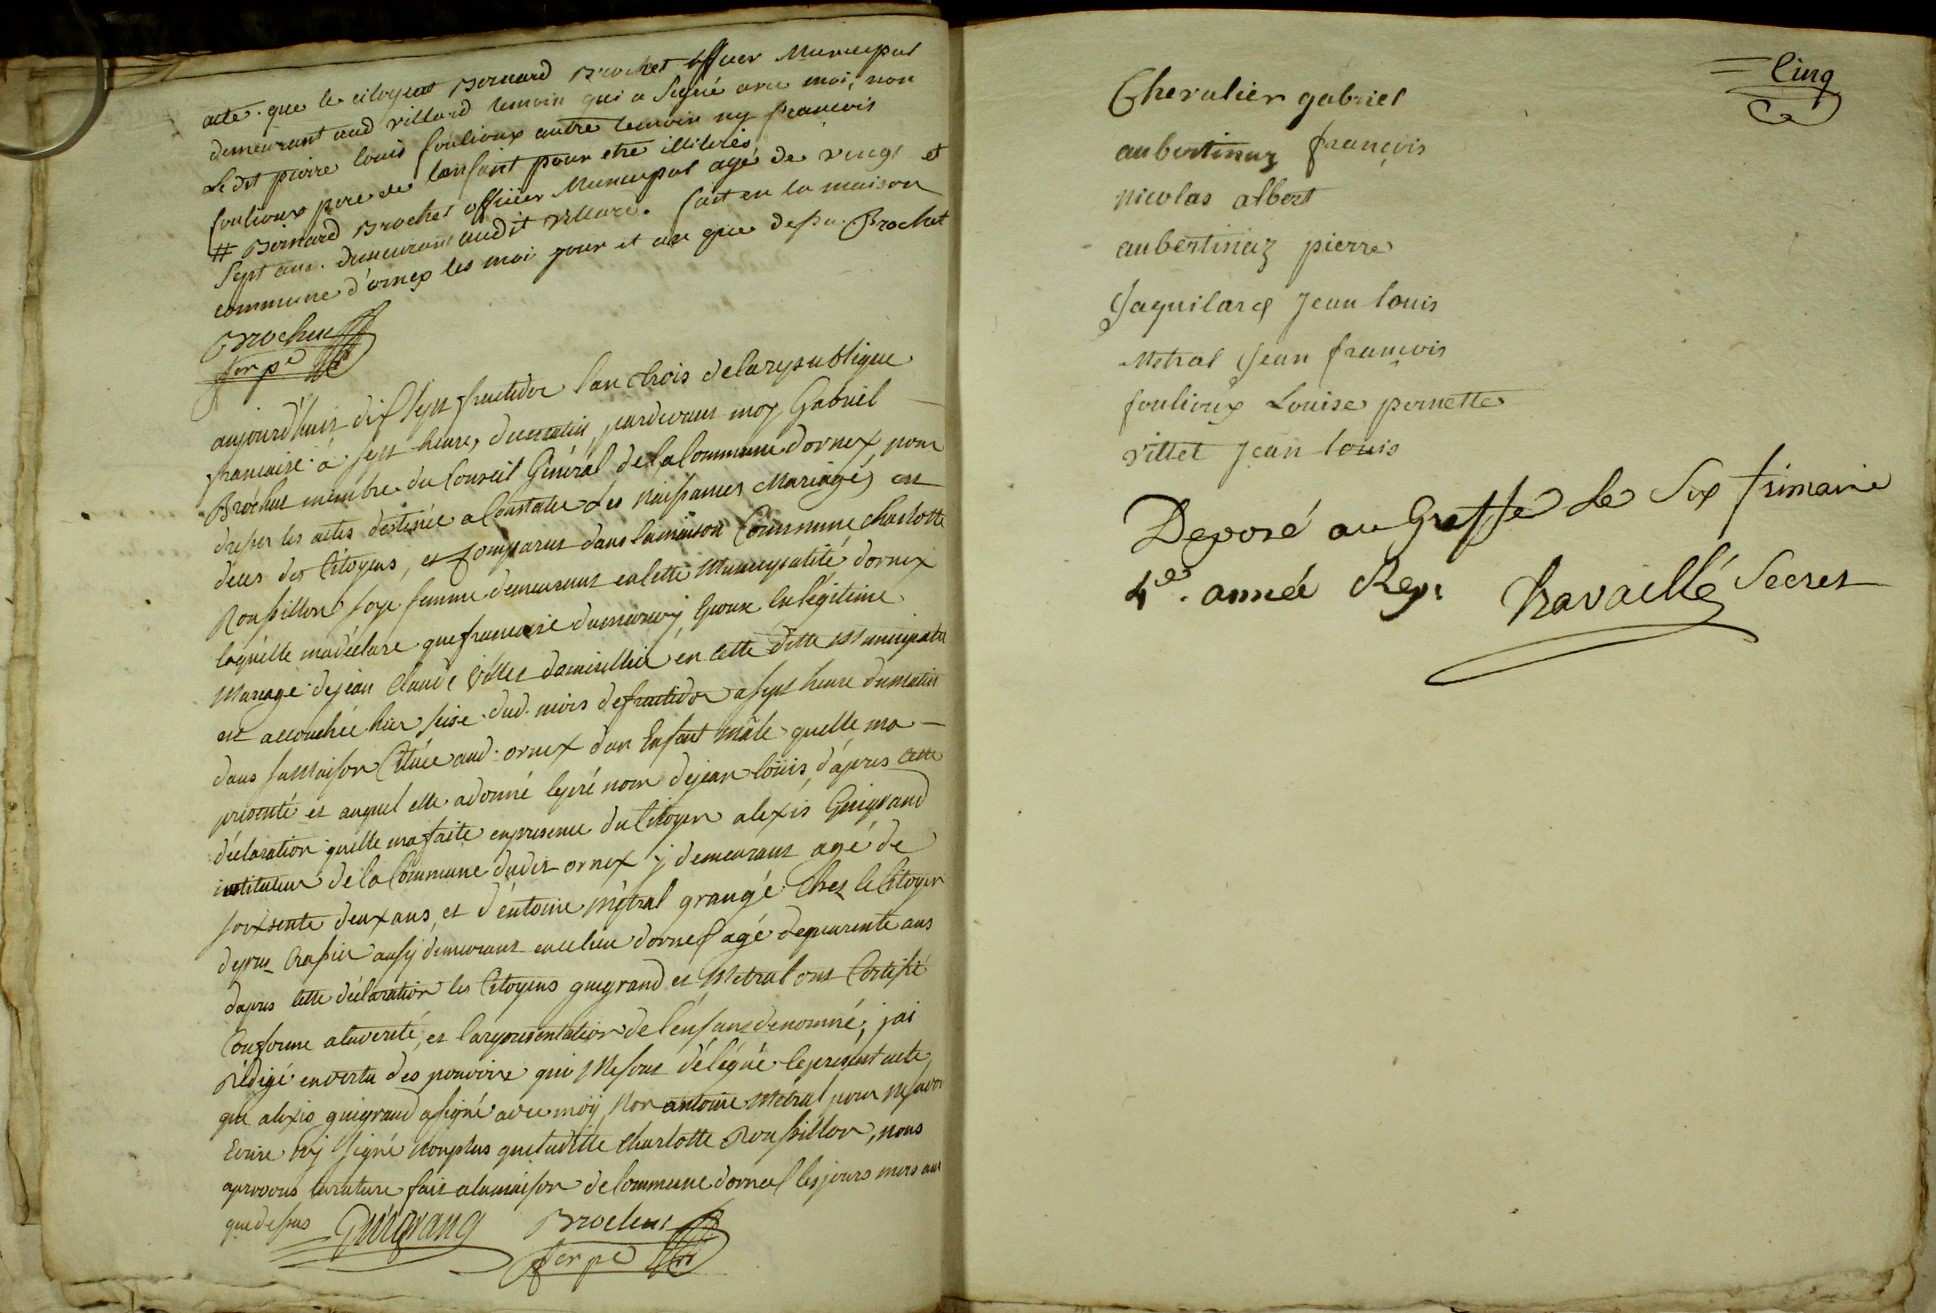 acte que le citoyent Bernard Brochet officier Municipal
demeurant aud villard temoin qui a signé avec moi, non
Le dit pierre louis foulioux autre temoin ny françois
foulioux pere de lenfant pour etre illiterés
# Bernard Brochet officier Municipal agé de vingt et
sept ans. demeurant audit villard. fait en la maison
commune d'ornex les moi jour et an que dessu. Brochet
Brochut
fer pé
aujourd'huis dix sept fructidor lan trois de la republique
francaise à sept heures du matin, pardevant moy Gabriel
Brochut membre du Conseil Général de la Commune dornex, pour
dresser les actes destinée a Constater les Naissances Mariages et
deces des Citoyens, est Comparut dans la maison Commune charlotte
Roussillon sage femme demeurant en cette Municipalité dornex
laquelle ma déclaré que francoise dumurcy, Epouse en légitime
Mariage de jean Claude Villet domicillié en cette ditte Municipalité
est accouchée hier seise dud. mois de fructidor a sept heure du matin
dans sa Maison Cituée aud. ornex d'un Enfant Mâle quelle ma
présenté et auquel elle a donné le pré nom de jean loüis, d'après cette
déclaration quelle ma faite en presence du Citoyen alexis Guigrand
instituteur de la Commune dudit ornex y demeurant agé de
soixsente deux ans, et d'entoine métral grangé Chez le Citoyen
deprez Crassier aussy demeurant en ce lieu dornex agé de quarente ans
dapres cette déclaration les Citoyens guigrand et Metral ont Certifié
Conforme a la verité, et la representation de l'enfans denommé; j'ai
Rédigé en vertu des pouvoirs qui Me sont délégué le present acte,
que alexis guigrand a signé avec moÿ, Non antoine Métral pour Ne savoir
Ecrire ny signé Non plus que laditte Charlotte Roussillon, nous
aprovons la rature fait a la maison de Commune dornex les jours mois an
que dessus Guigrang Brochut
fer pé
Cinq
Chevalier gabriel
aubertinaz françois
Nicolas albert
aubertinaz pierre
Jaquilard Jean louis
Métral Jean françois
foulioux Louise pernette
Villet Jean louis
Deposé au Greffe Le Six frimaire
4e. année Rep: Travaillé Secret